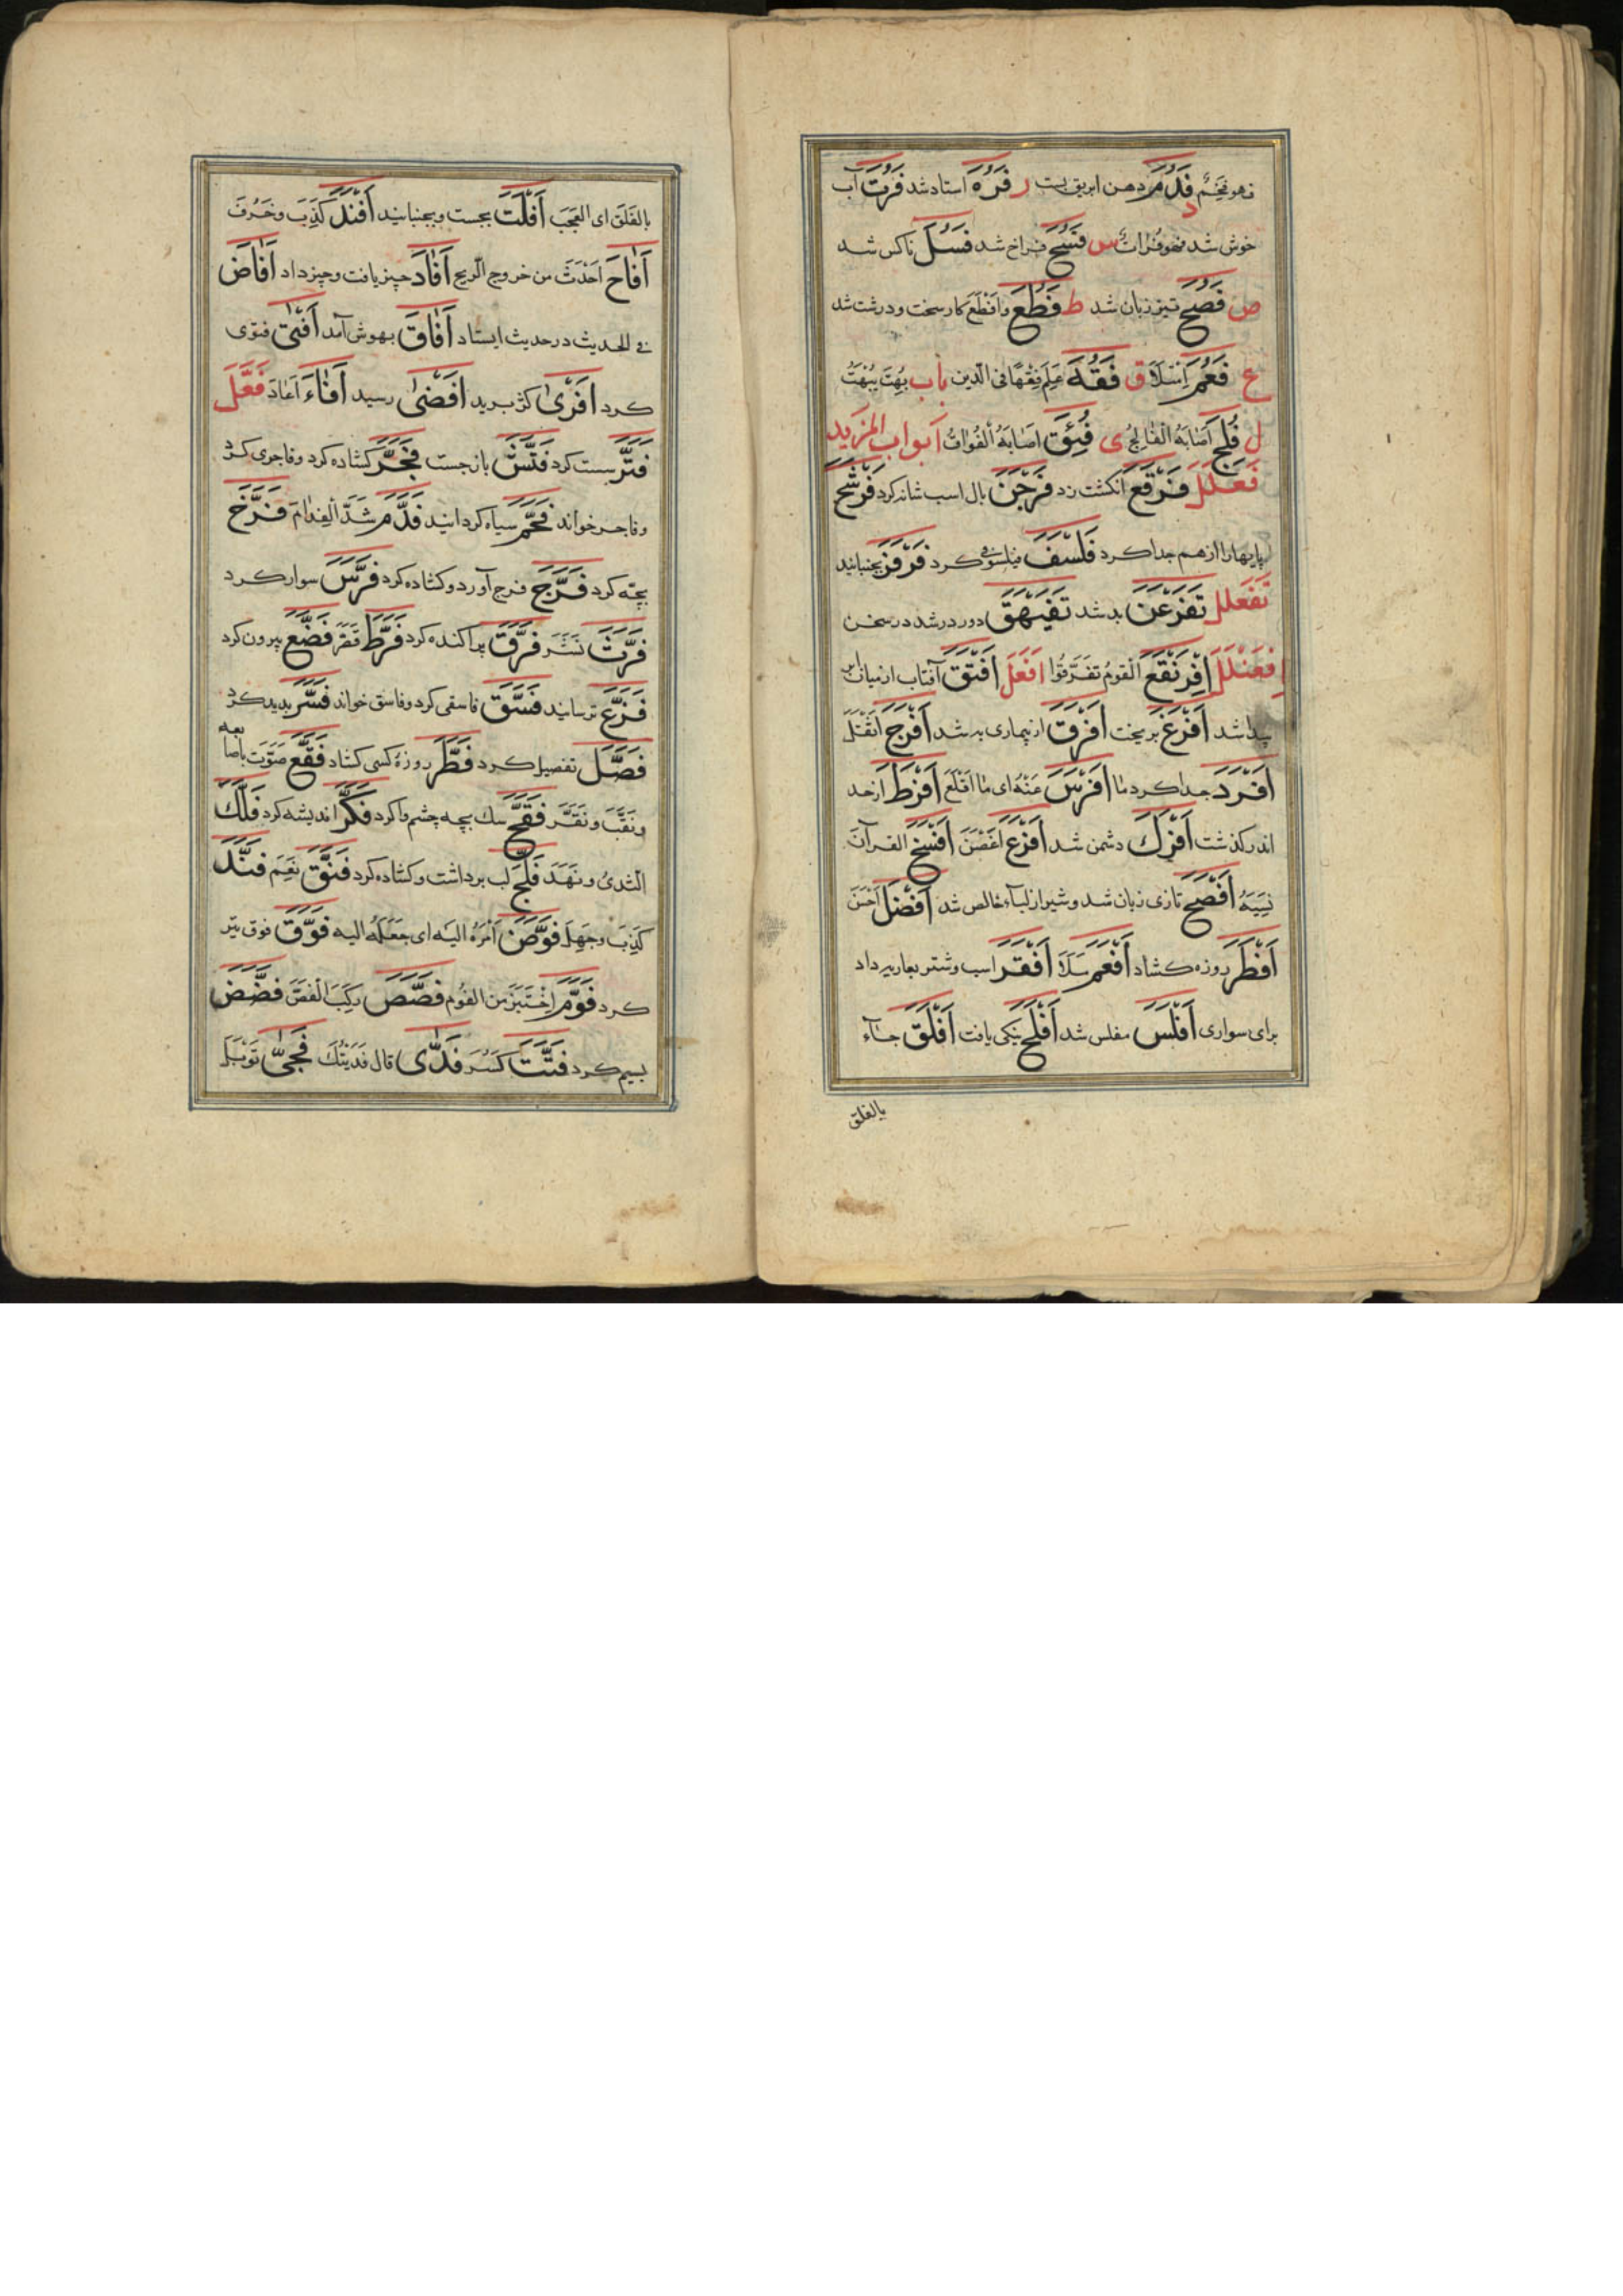 فهو فخم فَدُمَ دهن ابریق بست ر فَرُهَ استاد شد فَرُتَ آب
خوش شد فهو فرات س فَسُحَ فراخ شد فَسُلَ ناکس شد
ص فَصُحَ تیز زبان شد ط فَظُعَ وافظع کار سخت و درشت شد
ع فَعُمَ امتلا ق فَقُهَ علم فقها فی الدین باب بهت یبهت
ل فُلِجَ اصابه الفالج ی فُئِقَ اصابه الفواق ابواب المزید
فَعْلَلَ فَرْقَعَ انکشت زد فَرْجَنَ بال اسب شانه کرد فَرْشَحَ
پایهارا ازهم جدا کرد فَلْسَفَ فیلسوفی کرد فَرْفَرَ بجنبانید
تَفَعْلَلَ تَفَرْعَنَ بد شد تَفَيْهَقَ دور در شد در سخن
اِفْعَنْلَلَ اِفْرَنْقَعَ القوم تفرقوا اَفْعَلَ اَفْتَقَ آفتاب از میان ابر
پیدا شد اَفْرَغَ بریخت اَفْرَقَ از بیماری به شد اَفْرَجَ
اَفْرَدَ جدا کرد ما اَفْرَسَ عنه ای ما اقلع اَفْرَطَ از حد
اندر کذشت اَفْرَكَ دشمن شد اَفْرَعَ اغصن اَفْسَخَ القرآن
نسیه اَفْصَحَ تازی زبان شد و شیر از لباء خالص شد اَفْضَلَ احسن
اَفْطَرَ روزه کشاد اَفْعَمَ ملا اَفْقَرَ اسب و شتر بعاریه داد
برای سواری اَفْلَسَ مفلس شد اَفْلَحَ نیکی یافت اَفْلَقَ جاء
بالفلق
بالفلق ای العجب اَفْلَتَ بجست و بجنبانید اَفْنَدَ کذب و خرف
اَفَاحَ احدث من خروج الریح اَفَادَ چیز یافت و چیز داد اَفَاضَ
فی الحدیث در حدیث ایستاد اَفَاقَ بهوش آمد اَفْتَى فتوی
کرد اَفْرَى کژ برید اَفْضَى رسید اَفَاءَ اعاد فَعَّلَ
فَتَّرَ سست کرد فَتَّشَ باز جست فَجَّرَ کشاده کرد و فاجری کرد
و فاجر خواند فَحَّمَ سیاه کردانید فَدَّمَ شد الفدام فَرَّخَ
بچه کرد فَرَّجَ فرج آورد و کشاده کرد فَرَّسَ سوار کرد
فَرَّثَ نثر فَرَّقَ پراکنده کرد فَرَّطَ قصر فَضَّعَ بیرون کرد
فَزَّعَ ترسانید فَسَّقَ فاسقی کرد و فاسق خواند فَسَّرَ پدید کرد
فَصَّلَ تفصیل کرد فَطَّرَ روزه کسی کشاد فَقَّعَ صوت باصابعه
و نقب و نقر فَقَّحَ سک بچه چشم وا کرد فَكَّرَ اندیشه کرد فَلَّكَ
الثدی و نهد فَلَّجَ لب برداشت و کشاده کرد فَنَّقَ نعم فَنَّدَ
کذب و جهل فَوَّضَ امره الیه ای جعله الیه فَوَّقَ فوق تیر
کرد فَوَّمَ اختبز من الفوم فَصَّصَ رکب الفص فَضَّضَ
بسیم کرد فَتَّتَ کسر فَدَّى قال فدیتك فَجَّى